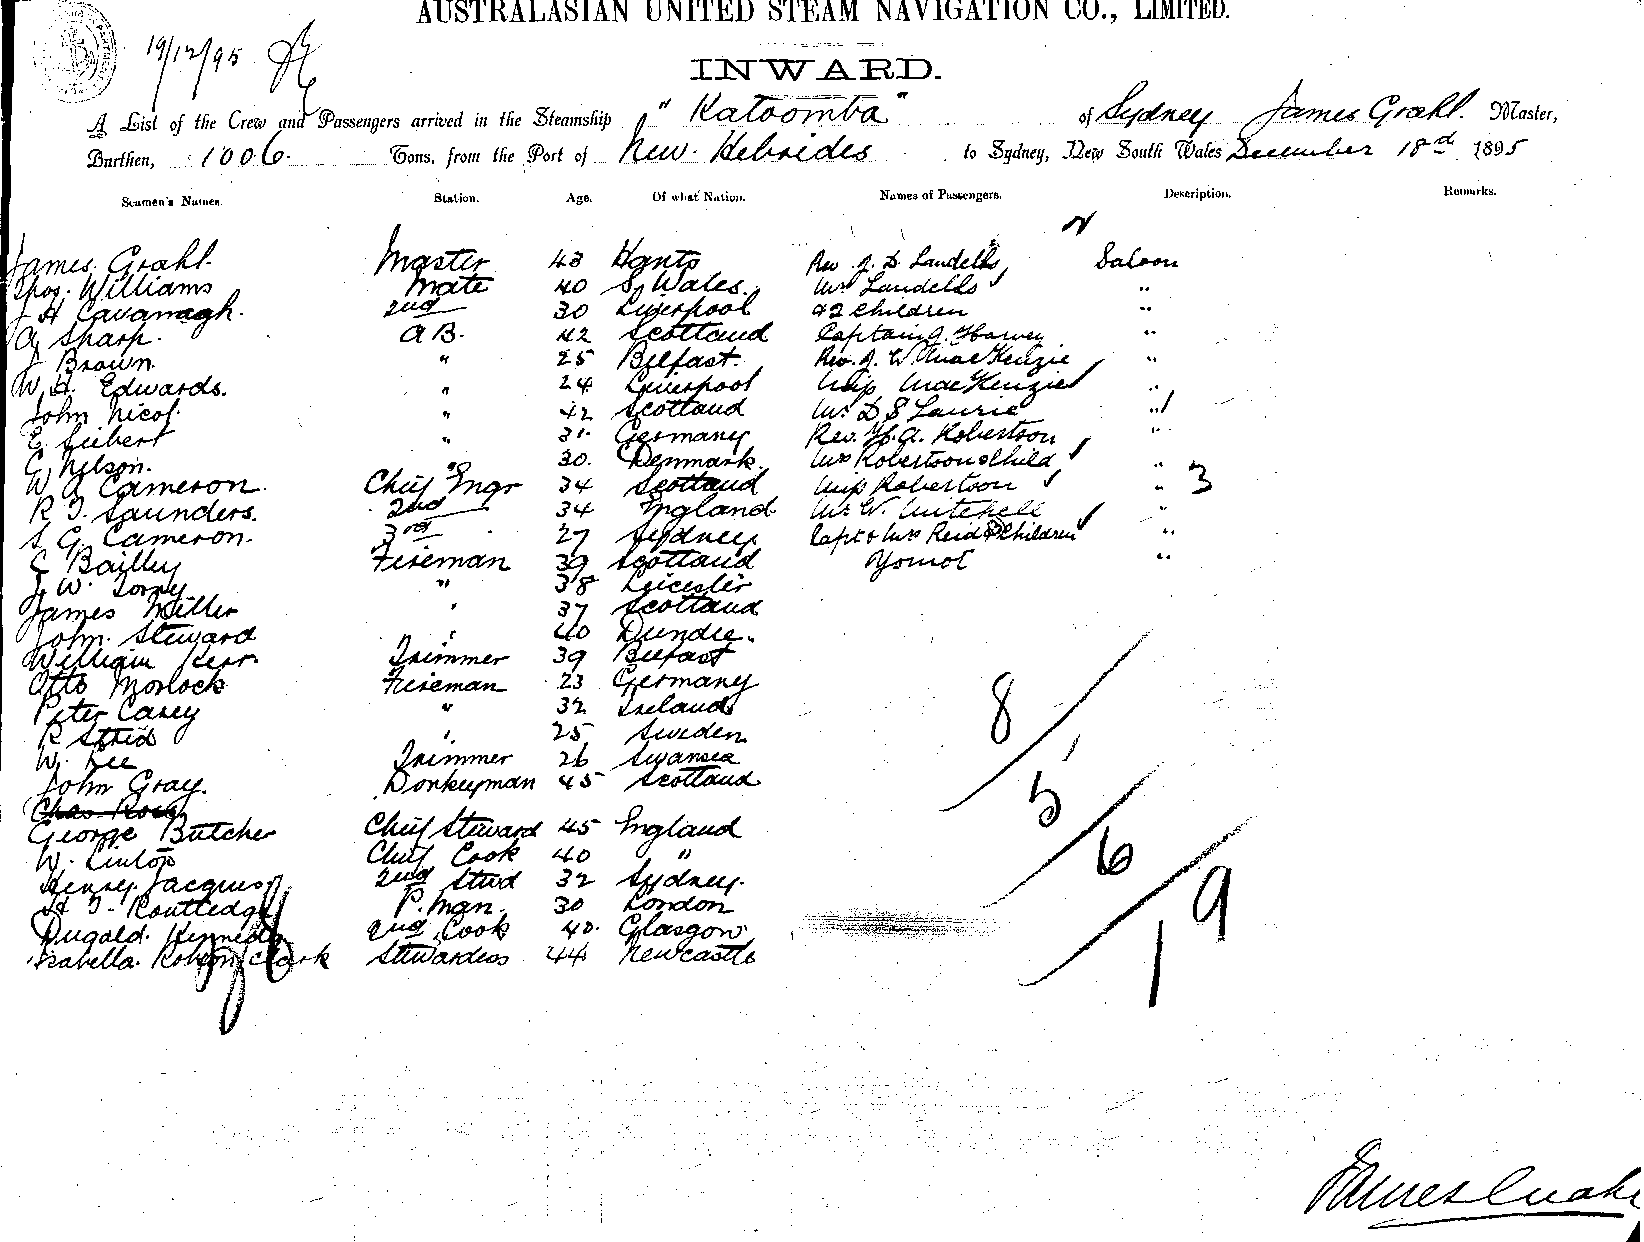 AUSTRALASIAN UNITED STEAM NAVIGATION CO., LIMITED.
19/12/95
INWARD.
A List of the Crew and Passengers arrived in the Steamship "Katoomba" of Sydney James Grahl. Master,
Burthen, 1006. Tons, from the Port of New Hebrides to Sydney, New South Wales December 18d 1895
Seamen's Names. Station. Age. Of what Nation. Names of Passengers. Description. Remarks.
James Grahl. Master 43 Hants Rev. J. D. Landells Saloon
Thos. Williams Mate 40 S. Wales. Mrs Landells "
J H Cavanagh. 2nd 30 Liverpool & 2 Children "
A Sharp. AB. 42 Scotland Captain A. Harvey "
J Brown. " 25 Belfast. Rev. J. W. MacKenzie "
W. H. Edwards. " 24 Liverpool Miss MacKenzie "
John Nicol. " 42 Scotland Mr D S Laurie "
E. Siebert " 31 Germany Rev. H. A. Robertson "
C. Nelson. " 30. Denmark. Mrs Robertson & Child "
W Cameron. Chief Engr 34 Scotland Miss Robertson " 3
R. J. Saunders. 2nd 34 England Mr W. Mitchell "
S. G. Cameron. 3rd 27 Sydney Capt & Mrs Reid & Children "
C Bailley Fireman 39 Scotland Yomot "
J. W. " 38 Leicester
James Miller " 37 Scotland
John. Steward " 40 Dundee.
William Kerr Trimmer 39 Belfast
Otto Morlock Fireman 23 Germany
Peter Carey " 32 Ireland
R " 25 Sweden
W. Lee Trimmer 26 Swansea
John Gray. Donkeyman 45 Scotland
Chas
George Butcher Chief Steward 45 England
W. Linton Chief Cook 40 "
Henry Jacquis 2nd Stwd 32 Sydney.
H J. Routledge P. Man. 30 London
Dugald. Kennedy 2nd Cook 40. Glasgow
Isabella Robson Clark Stewardess 44 Newcastle
8
5
6
9
1
James Grahl